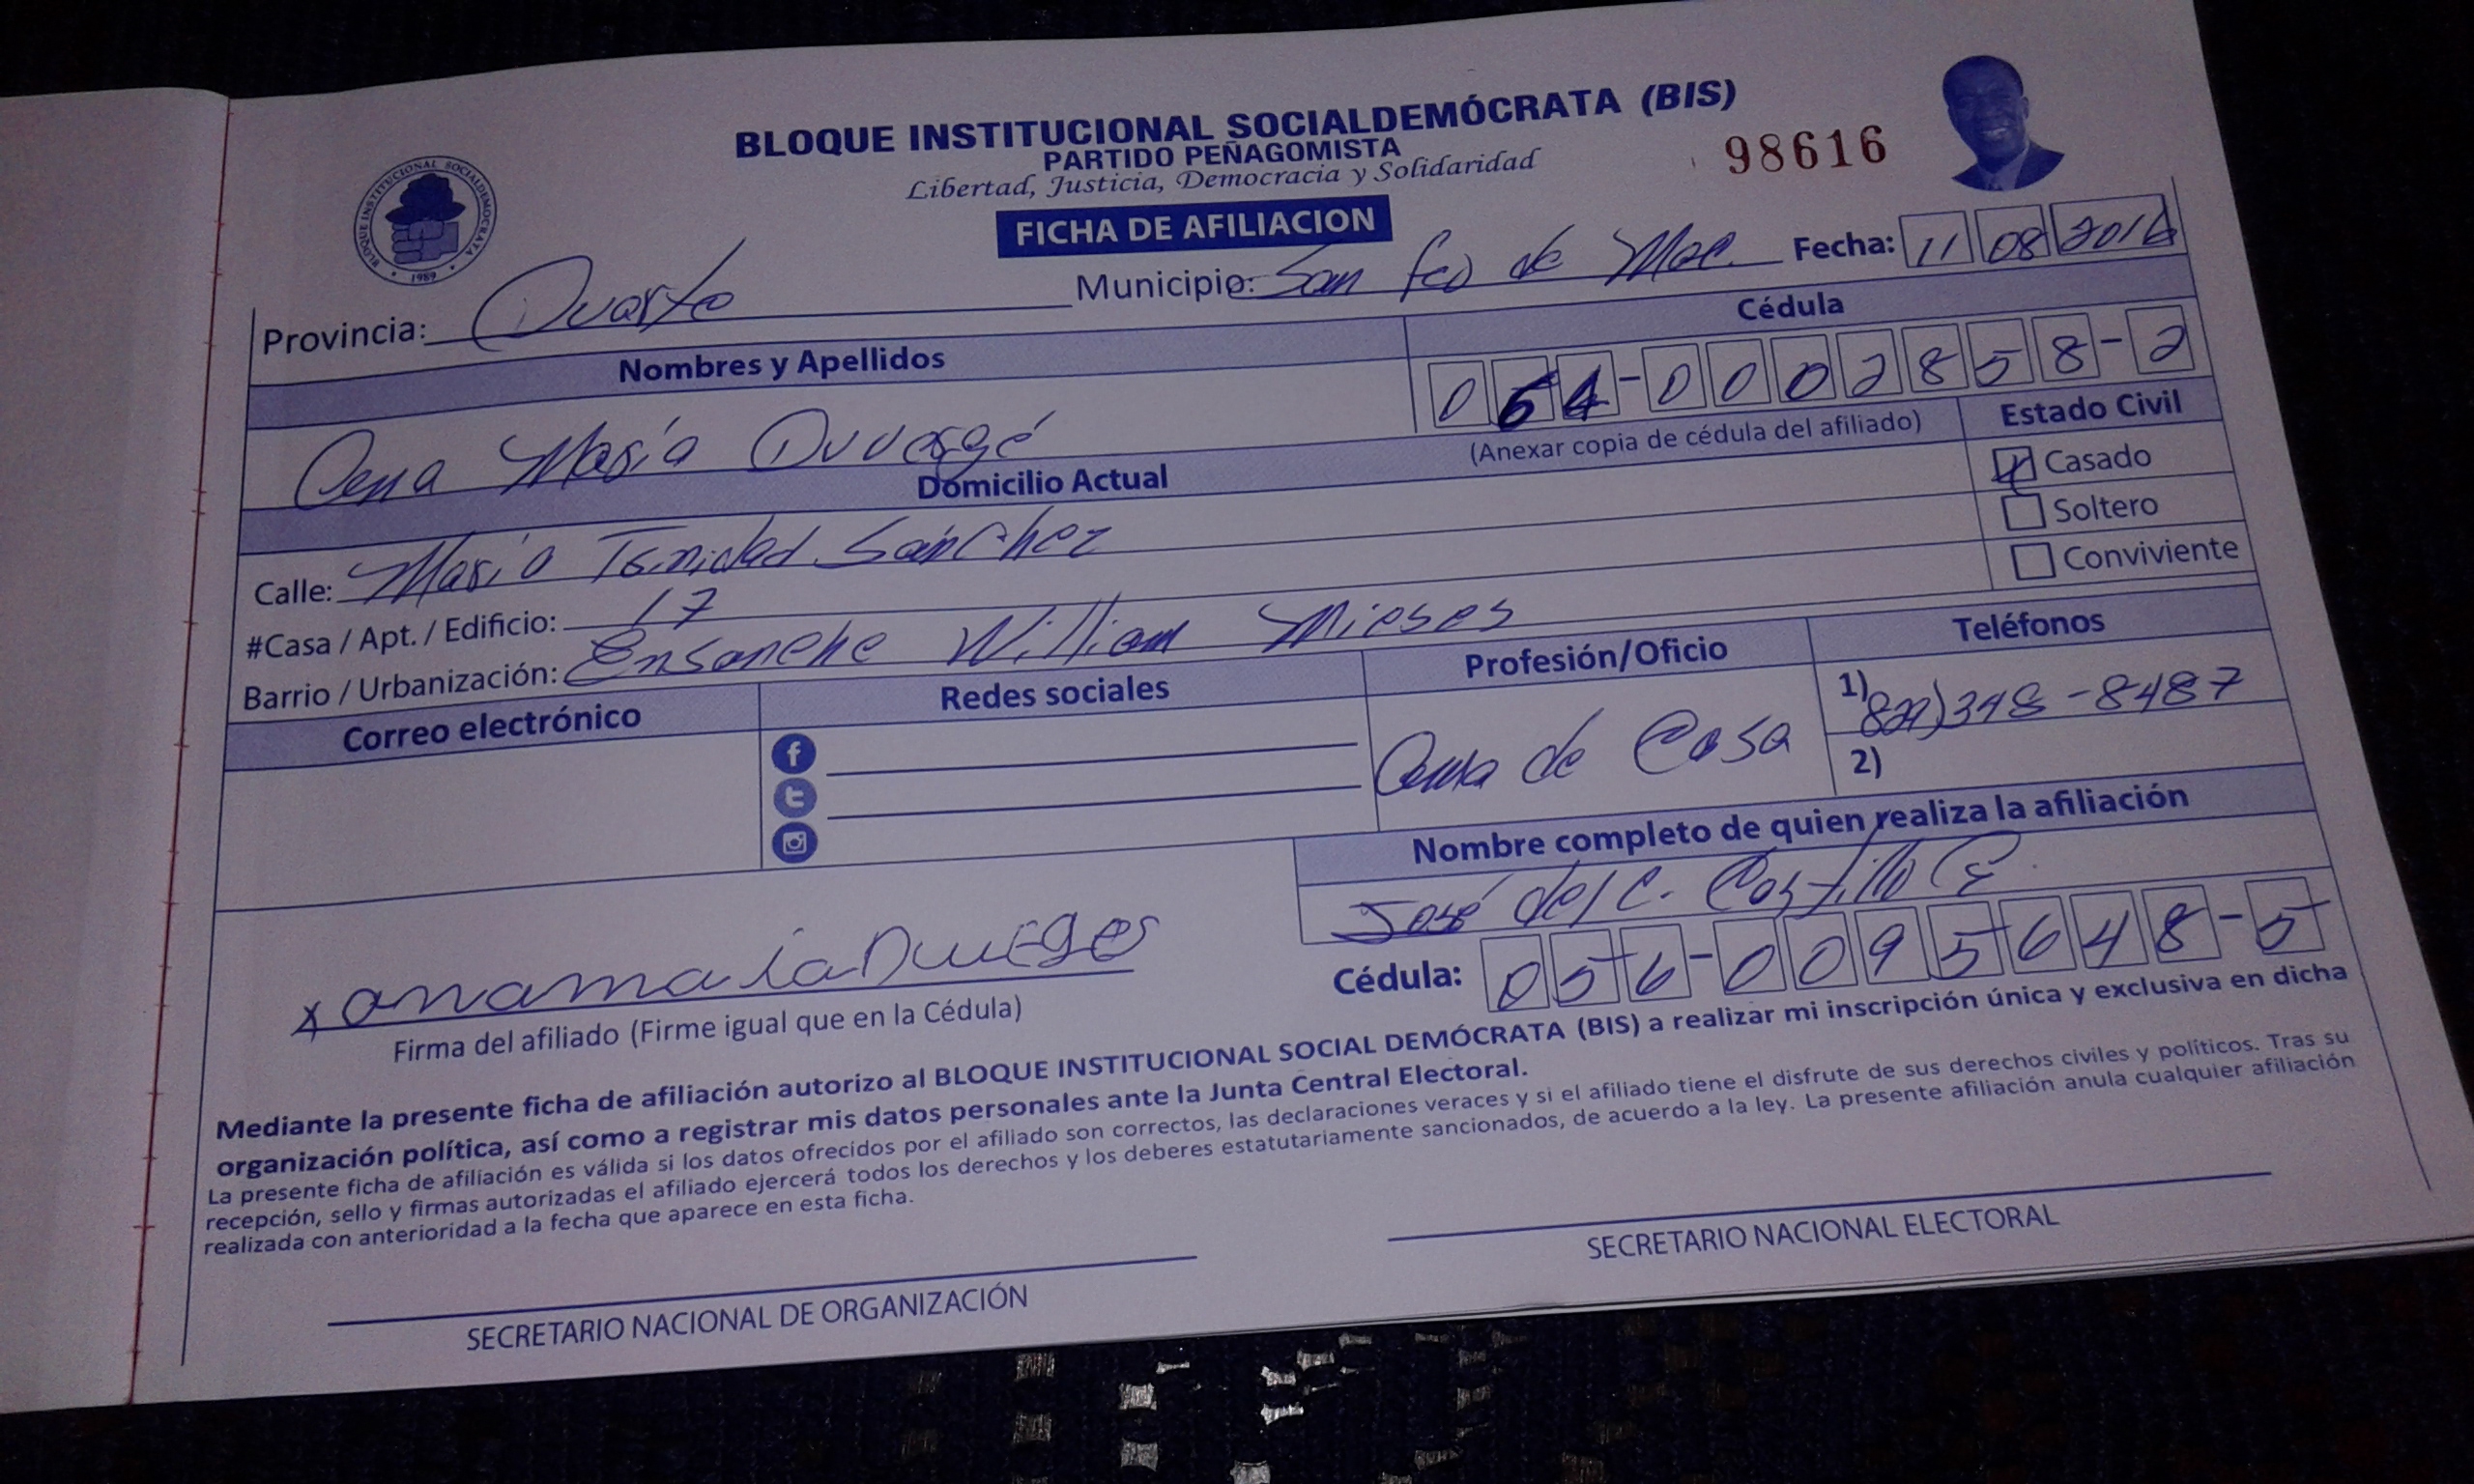 BLOQUE INSTITUCIONAL SOCIALDEMÓCRATA (BIS)
PARTIDO PEÑAGOMISTA
98616
Libertad, Justicia, Democracia y Solidaridad
BLOQUE INSTITUCIONAL SOCIALDEMOCRATA
1989
FICHA DE AFILIACION
Provincia: Duarte Municipio: San Fco de Mac. Fecha: 11 08 2016
Nombres y Apellidos Cédula
Ana María Duvergé 064-0002858-2
(Anexar copia de cédula del afiliado)
Estado Civil
Domicilio Actual
Casado
Soltero
Conviviente
Calle: María Trinidad Sánchez
#Casa / Apt. / Edificio: 17
Barrio / Urbanización: Ensanche William Mieses
Correo electrónico Redes sociales Profesión/Oficio Teléfonos
Ama de Casa 1) 829)348-8487
2)
Nombre completo de quien realiza la afiliación
José del C. Castillo G.
Cédula: 056-0095648-5
x anamaiaDuveges
Firma del afiliado (Firme igual que en la Cédula)
Mediante la presente ficha de afiliación autorizo al BLOQUE INSTITUCIONAL SOCIAL DEMÓCRATA (BIS) a realizar mi inscripción única y exclusiva en dicha
organización política, así como a registrar mis datos personales ante la Junta Central Electoral.
La presente ficha de afiliación es válida si los datos ofrecidos por el afiliado son correctos, las declaraciones veraces y si el afiliado tiene el disfrute de sus derechos civiles y políticos. Tras su
recepción, sello y firmas autorizadas el afiliado ejercerá todos los derechos y los deberes estatutariamente sancionados, de acuerdo a la ley. La presente afiliación anula cualquier afiliación
realizada con anterioridad a la fecha que aparece en esta ficha.
SECRETARIO NACIONAL DE ORGANIZACIÓN
SECRETARIO NACIONAL ELECTORAL